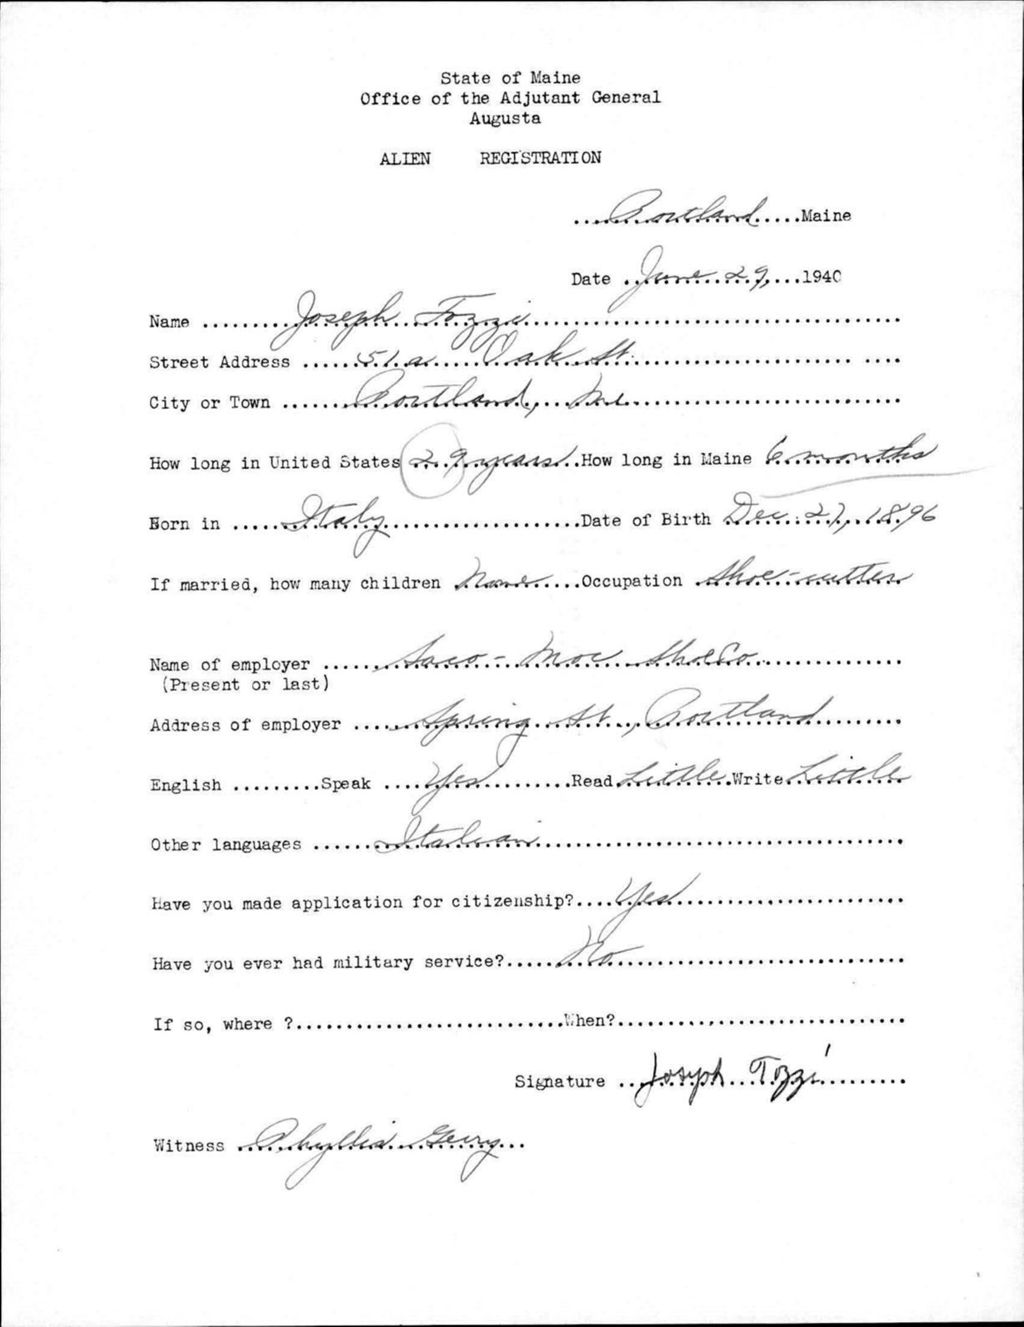 State of Maine
Office of the Adjutant General
Augusta
ALIEN REGISTRATION
Portland Maine
Date June 29, 1940
Name Joseph Tozzi
Street Address 51a Oak St.
City or Town Portland, Me.
How long in United States 29 years How long in Maine 6 months
Born in Italy Date of Birth Dec. 27, 1896
If married, how many children None Occupation Shoe-cutter
Name of employer Saco-Moc Shoe Co.
(Present or last)
Address of employer Spring St., Portland
English Speak Yes Read Little Write Little
Other languages Italian
Have you made application for citizenship? Yes
Have you ever had military service? No
If so, where ? When?
Signature Joseph Tozzi
Witness Phyllis Gerry